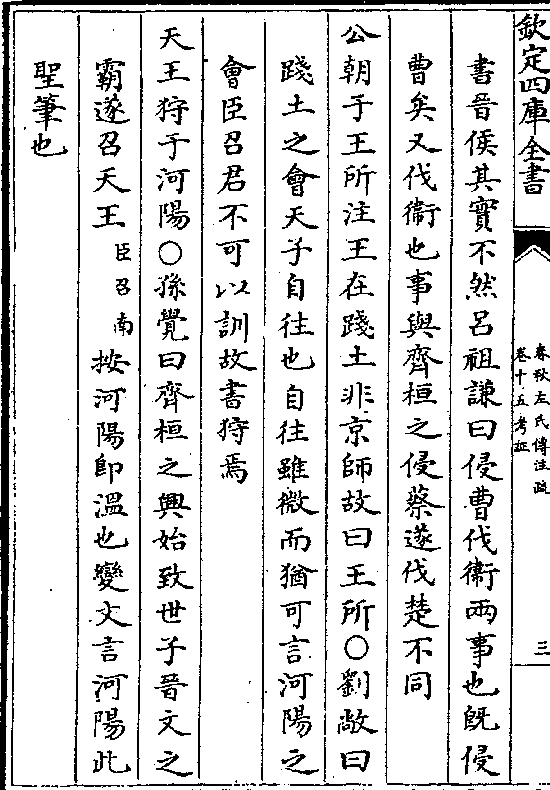 欽定四庫全書
春秋左氏傳注疏
卷十五考証
三
書晉侯其實不然呂祖謙曰侵曹伐衛兩事也旣侵
曹矣又伐衛也事與齊桓之侵蔡遂伐楚不同
公朝于王所注王在踐土非京師故曰王所○劉敞曰
踐土之會天子自往也自往雖微而猶可言河陽之
會臣召君不可以訓故書狩焉
天王狩于河陽○孫覺曰齊桓之興始致世子晉文之
霸遂召天王臣召南按河陽即溫也變文言河陽此
聖筆也